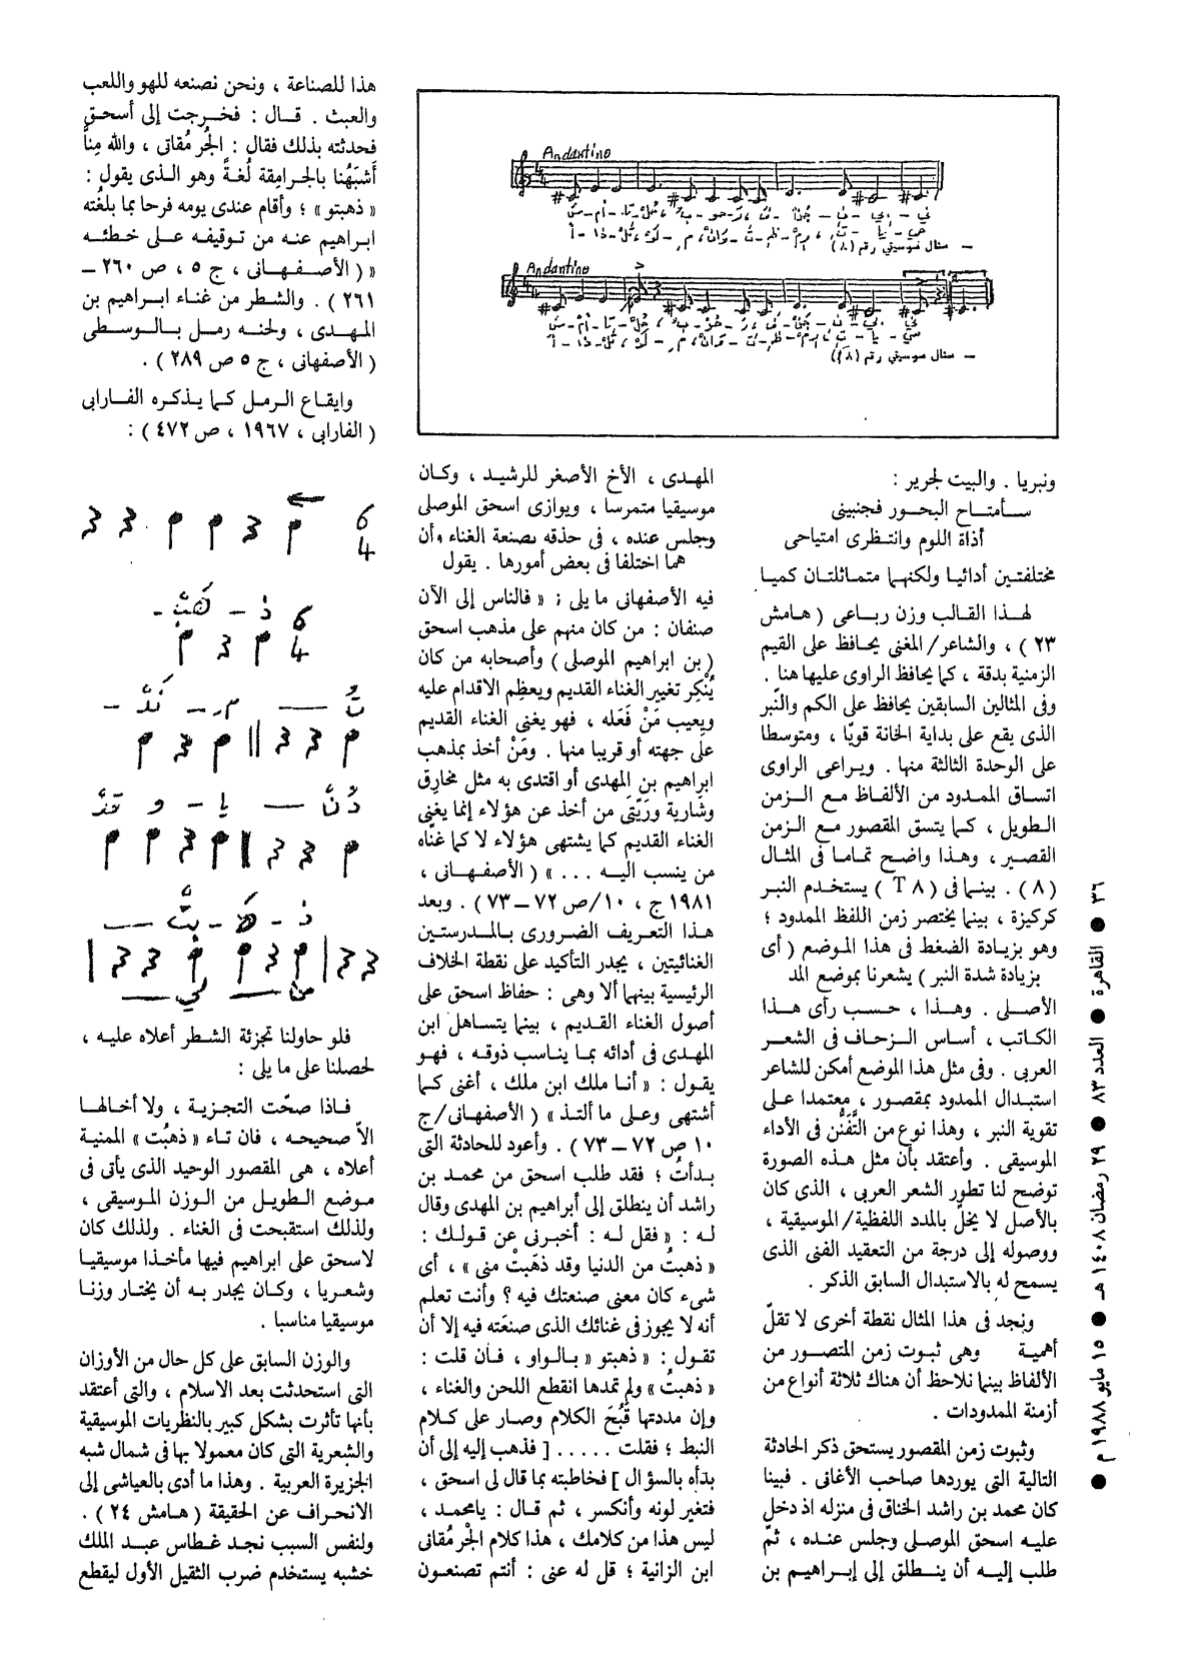 Andantino
— مثال موسيقي رقم (٨)
Andantino
— مثال موسيقي رقم (T٨)
ونبريا . والبيت لجرير :
سـأمتـاح البحـور فجنبينى
أذاة اللوم وانتـظرى امتياحى
مختلفتـين أدائيـا ولكنهـما متمـاثلتـان كميـا
لهـذا القالب وزن ربـاعى ( هـامش
٢٣ ) ، والشاعر/ المغنى يحـافظ على القيم
الزمنية بدقة ، كما يحافظ الراوى عليها هنا .
وفى المثالين السابقين يحافظ على الكم والنّبر
الذى يقع على بداية الخانة قويّا ، ومتوسطا
على الوحدة الثالثة منها . ويـراعى الراوى
اتساق الممـدود من الألفـاظ مـع الـزمن
الـطويل ، كـما يتسق المقصور مـع الـزمن
القصير ، وهـذا واضـح تمـامـا فى المثـال
( ٨ ) . بينـما فى ( T ٨ ) يستخـدم النبـر
كركيزة ، بينما يختصر زمن اللفظ الممدود ؛
وهو بزيـادة الضغط فى هذا المـوضع ( أى
بزيادة شدة النبر ) يشعرنا بموضع المد
الأصـلى . وهـذا ، حسـب رأى هـذا
الكـاتب ، أسـاس الـزحـاف فى الشعـر
العربى . وفى مثل هذا الموضع أمكن للشاعر
استبدال الممدود بمقصور ، معتمدا عـلى
تقوية النبر ، وهذا نوع من التَّفَنُّن فى الأداء
الموسيقى . وأعتقد بأن مثل هـذه الصورة
توضح لنا تطور الشعر العربى ، الذى كان
بالأصل لا يخلّ بالمدد اللفظية/ الموسيقية ،
ووصوله إلى درجة من التعقيد الفنى الذى
يسمح له بالاستبدال السابق الذكر .
ونجد فى هذا المثال نقطة أخرى لا تقلّ
أهميـة وهى ثبـوت زمن المتصـور من
الألفاظ بينما نلاحظ أن هناك ثلاثة أنواع من
أزمنة الممدودات .
وثبوت زمن المقصور يستحق ذكر الحادثة
التالية التى يوردها صاحب الأغانى . فبينا
كان محمد بن راشد الخناق فى منزله اذ دخل
عليـه اسحق الموصـلى وجلس عنـده ، ثمّ
طلب إليـه أن ينـطلق إلى إبـراهيـم بن
المهـدى ، الأخ الأصغر للرشيـد ، وكـان
موسيقيا متمرسا ، ويوازى اسحق الموصلى
وجلس عنده ، فى حذقه بصنعة الغناء وأن
هما اختلفا فى بعض أمورها . يقول
فيه الأصفهانى ما يلى ؛ « فالناس إلى الآن
صنفان : من كان منهم على مذهب اسحق
( بن ابراهيم الموصلى ) وأصحابه من كان
يُنْكِر تغيير الغناء القديم ويعظِم الاقدام عليه
ويعيب مَنْ فَعَله ، فهو يغنى الغناء القديم
على جهته أو قريبا منها . ومَنْ أخذ بمذهب
ابراهيم بن المهدى أو اقتدى به مثل مخارق
وشارية ورَيّق من أخذ عن هؤلاء إنما يغنى
الغناء القديم كما يشتهى هؤلاء لا كما غنّاه
من ينسب اليـه . . . » ( الأصفـهـانى ،
١٩٨١ ج ، ١٠/ص ٧٢ ــ ٧٣ ) . وبعد
هـذا التعريـف الضـرورى بـالمـدرستـين
الغنائيتين ، يجدر التأكيد على نقطة الخلاف
الرئيسية بينهما ألا وهى : حفاظ اسحق على
أصول الغناء القـديم ، بينما يتسـاهل ابن
المهدى فى أدائه بمـا يناسب ذوقـه ، فهـو
يقـول : « أنـا ملك ابن ملك ، أغنى كـما
أشتهى وعـلى ما ألتـذ » ( الأصفهـانى/ ج
١٠ ص ٧٢ ــ ٧٣ ) . وأعود للحادثة التى
بـدأتُ ؛ فقد طلب اسحق من محمـد بن
راشد أن ينطلق إلى أبراهيم بن المهدى وقال
لـه : « فقل لـه : أخبـرنى عن قـولـك :
« ذهبتُ من الدنيا وقد ذهَبَتْ منى » ، أى
شىء كان معنى صنعتك فيه ؟ وأنت تعلم
أنه لا يجوز فى غنائك الذى صنعَته فيه إلا أن
تقـول : « ذهبتو » بـالـواو ، فـأن قلت :
« ذهبتُ » ولم تمدها انقطع اللحن والغناء ،
وإن مددتها قَبُحَ الكلام وصار على كـلام
النبط ؛ فقلت . . . . . [ فذهب إليه إلى أن
بدأه بالسؤال ] فخاطبته بما قال لى اسحق ،
فتغير لونه وأنكسر ، ثم قـال : يامحمـد ،
ليس هذا من كلامك ، هذا كلام الجُرمُقانى
ابن الزانية ؛ قل له عنى : أنتم تصنعـون
هذا للصناعة ، ونحن نصنعه للهو واللعب
والعبث . قـال : فخـرجت إلى أسحـق
فحدثته بذلك فقال : الجُر مُقانى ، والله مِنا
أَشبَهُنا بالجـرامِقة لُغـةً وهو الـذى يقول :
« ذهبتو » ؛ وأقام عندى يومه فرحا بما بلغْته
ابـراهيم عنـه من تـوقيفـه عـلى خـطئـه
» ( الأصـفـهـانى ، ج ٥ ، ص ٢٦٠ ــ
٢٦١ ) . والشـطر من غنـاء ابـراهيم بن
المـهـدى ، ولحنـه رمـل بـالـوسـطى
( الأصفهانى ، ج ٥ ص ٢٨٩ ) .
وايقـاع الـرمـل كـما يـذكـره الفـارابى
( الفارابى ، ١٩٦٧ ، ص ٤٧٢ ) :
6
4
6
4
فلو حاولنا تجزئة الشطر أعلاه عليـه ،
لحصلنا على ما يلى :
فـاذا صحّت التجـزيـة ، ولا أخـالهـا
الاّ صحيحـه ، فان تـاء « ذهبُت » المنيـة
أعلاه ، هى المقصور الوحيد الذى يأتى فى
مـوضع الـطويـل من الـوزن المـوسيقى ،
ولذلك استقبحت فى الغناء . ولذلك كان
لاسحق على ابراهيم فيها مأخـذا موسيقيـا
وشعـريا ، وكـان يجدر بـه أن يختـار وزنـا
موسيقيا مناسبا .
والوزن السابق على كل حال من الأوزان
التى استحدثت بعد الاسلام ، والتى أعتقد
بأنها تأثرت بشكل كبير بالنظريات الموسيقية
والشعرية التى كان معمولا بها فى شمال شبه
الجزيرة العربية . وهذا ما أدى بالعياشى إلى
الانحـراف عن الحقيقة ( هـامش ٢٤ ) .
ولنفس السبب نجـد غـطاس عبـد الملك
خشبه يستخدم ضرب الثقيل الأول ليقطع
٣٦ ● القاهرة ● العدد ٨٣ ● ٢٩ رمضان ١٤٠٨ هـ ● ١٥ مايو ١٩٨٨ م ●